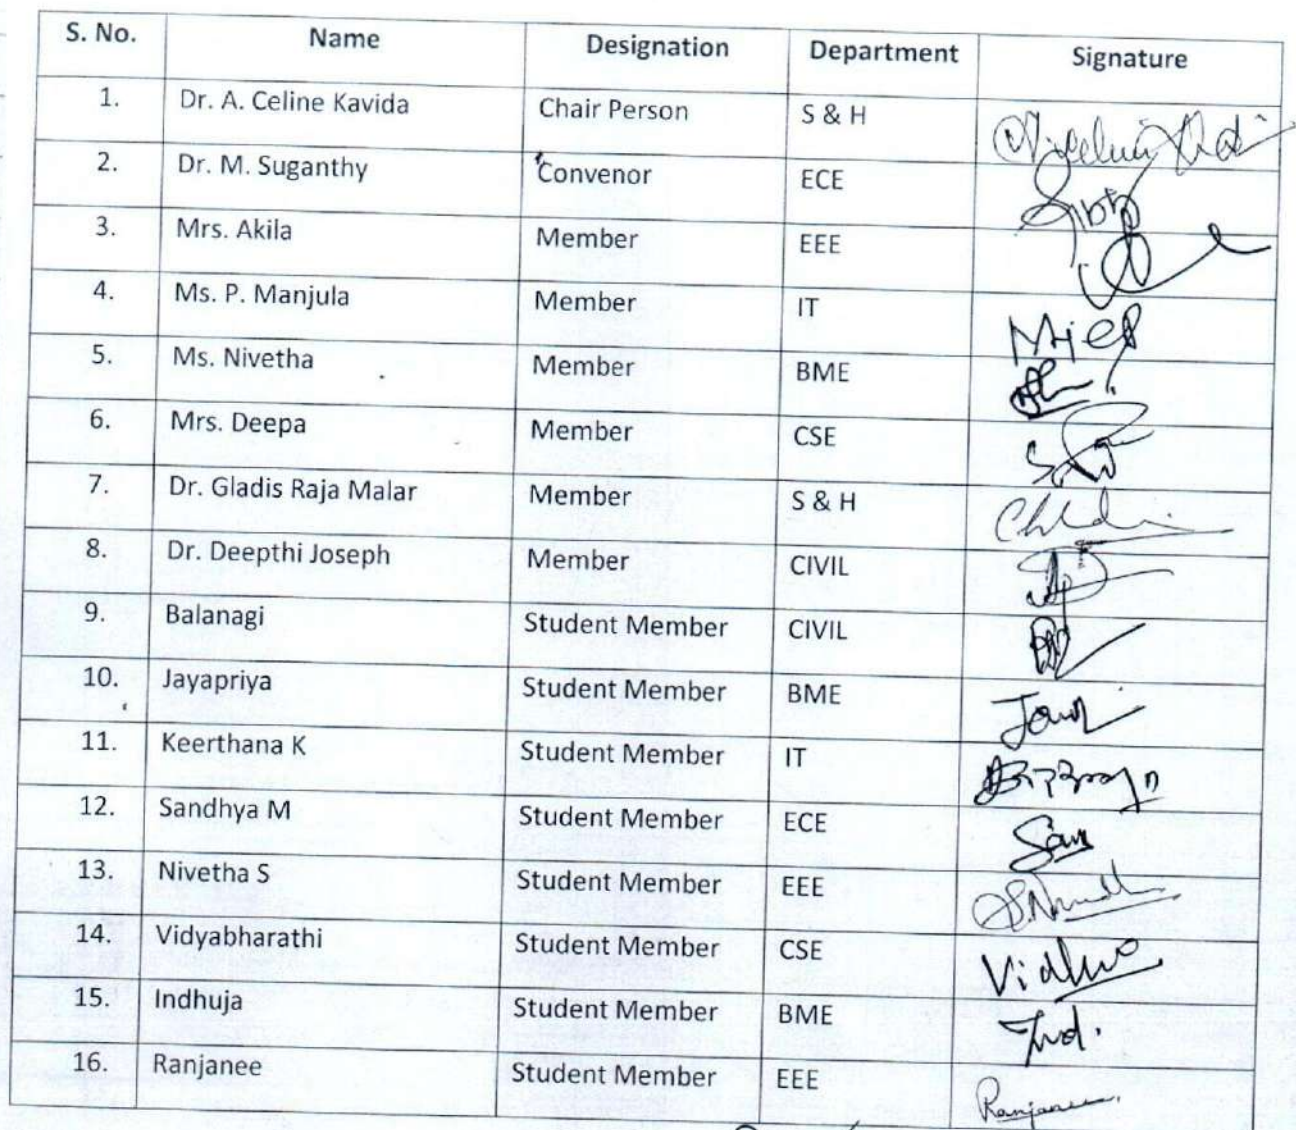 S. No. Name Designation Department Signature
1. Dr. A. Celine Kavida Chair Person S & H
2. Dr. M. Suganthy Convenor ECE
3. Mrs. Akila Member EEE
4. Ms. P. Manjula Member IT
5. Ms. Nivetha Member BME
6. Mrs. Deepa Member CSE
7. Dr. Gladis Raja Malar Member S & H
8. Dr. Deepthi Joseph Member CIVIL
9. Balanagi Student Member CIVIL
10. Jayapriya Student Member BME
11. Keerthana K Student Member IT
12. Sandhya M Student Member ECE
13. Nivetha S Student Member EEE
14. Vidyabharathi Student Member CSE
15. Indhuja Student Member BME
16. Ranjanee Student Member EEE Ranjanee